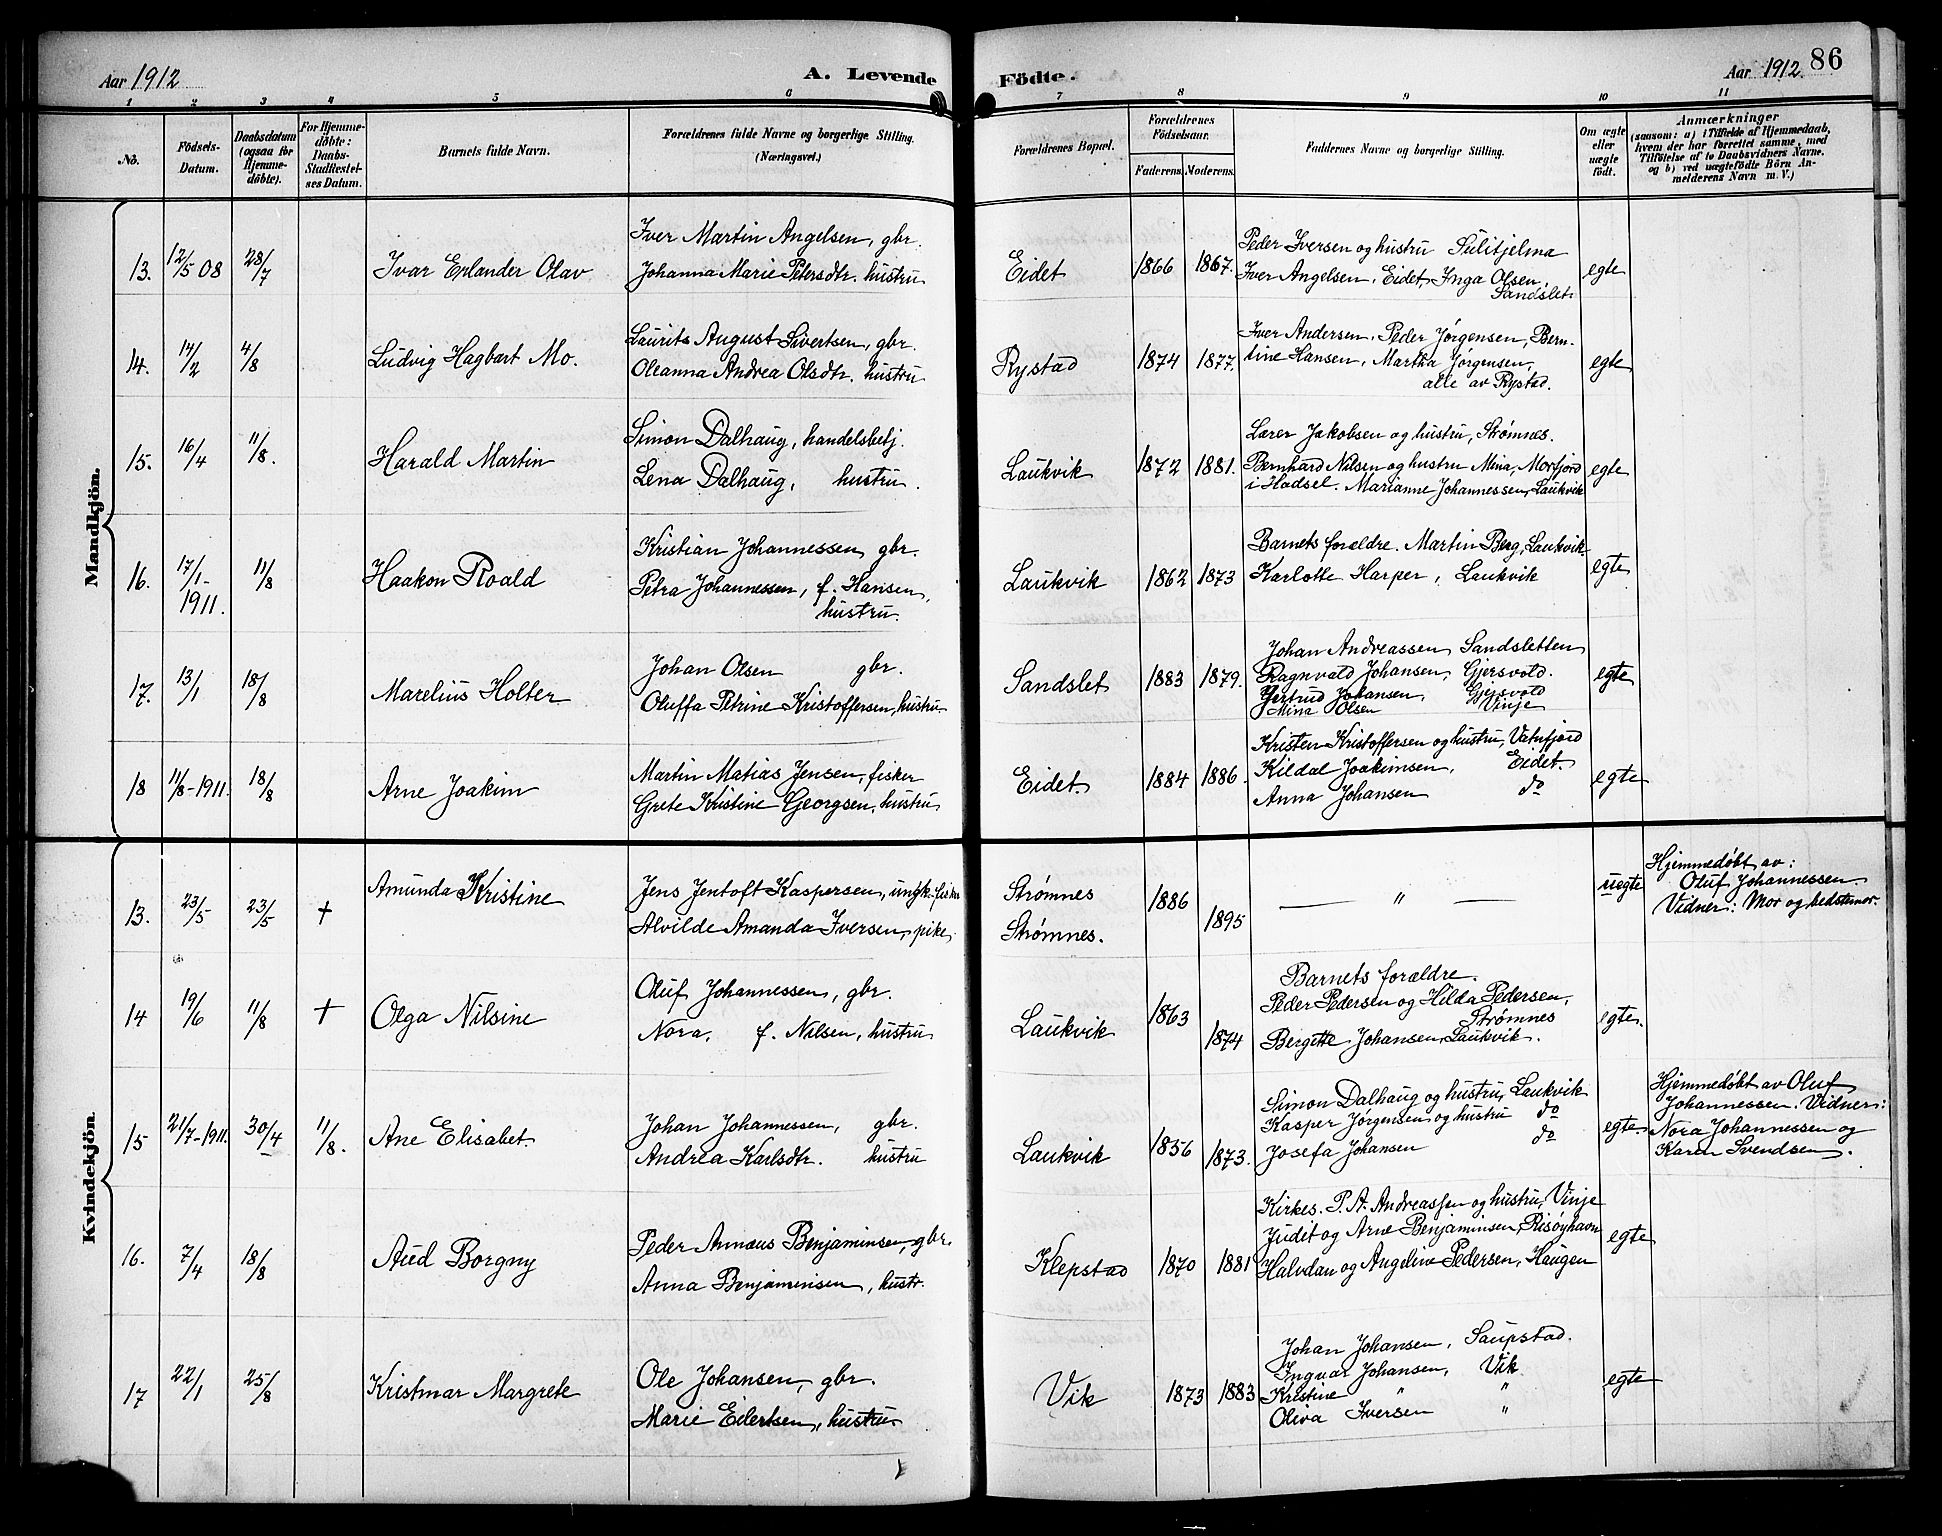 Aar 1912
A. Levende
Födte.
Aar 1912.
86
1 2 3 4 5 6 7 8 9 10 11
No.
Födsels-
Datum.
Daabsdatum
(ogsaa for
Hjemme-
döbte).
For Hjemme-
döbte:
Daabs-
Stadfæstel-
ses Datum.
Barnets fulde Navn.
Forældrenes fulde Navne og borgerlige Stilling.
(Næringsvei.)
Forældrenes Bopæl.
Forældrenes
Födselsaar.
Faderens. Moderens.
Faddernes Navne og borgerlige Stilling.
Om ægte
eller
uægte
födt.
Anmærkninger
(saasom: a) i Tilfælde af Hjemmedaab,
hvem der har forrettet samme, med
Tilföielse af to Daabsvidners Navne.
og b) ved uægtefödte Börn An-
melderens Navn m. V.)
Mandkjön.
13. 12/5 08 28/7 Ivar Erlander Olav
Iver Martin Angelsen, gbr.
Johanna Marie Petersdtr. hustru
Eidet 1866 1867.
Peder Iversen og hustru Sulitjelma
Iver Angelsen, Eidet, Inga Olsen,
Sandslet
egte
14. 14/2 4/8 Ludvig Hagbart Mo.
Laurits August Sivertsen, gbr.
Oleanna Andrea Olsdtr. hustru
Rystad 1874 1877.
Iver Andersen, Peder Jørgensen, Bern-
tine Hansen, Martha Jørgensen,
alle av Rystad.
egte
15. 16/4 11/8. Harald Martin
Simon Dalhaug, handelsbetj.
Lena Dalhaug, hustru.
Laukvik 1872 1881.
Lærer Jakobsen og hustru, Strømnes.
Bernhard Nilsen og hustru Mina, Morfjord
i Hadsel. Marianne Johannessen, Laukvik
egte
16. 17/1-1911. 11/8 Haakon Roald
Kristian Johannessen, gbr.
Petra Johannessen, f. Hansen,
hustru.
Laukvik 1862 1873
Barnets forældre. Martin Berg, Laukvik.
Karlotte Harper, Laukvik
egte
17. 13/1 18/8 Marelius Holter
Johan Olsen gbr.
Oluffa Petrine Kristoffersen, hustru
Sandslet 1883 1879.
Johan Andreassen Sandsletten
Ragnvald Johansen, Gjersvold.
Gertrud Johansen, Gjersvold
Mina Olsen Vinje
egte
18 11/8-1911. 18/8 Arne Joakim
Martin Matias Jensen, fisker
Grete Kristine Georgsen, hustru
Eidet 1884 1886.
Kristen Kristoffersen og hustru, Vatnfjord
Kildal Joakimsen, Eidet.
Anna Johansen do
egte
Kvindekjön.
13. 23/5 23/5 + Amunda Kristine
Jens Jentoft Kaspersen, ungk. fisker
Alvilde Amanda Iversen, pike.
Strømnes
Strømnes.
1886 1895
— " —
uegte
Hjemmedøbt av:
Oluf Johannessen.
Vidner: Mor og bedstemor.
14 19/6 11/8 + Olga Nilsine
Oluf Johannessen, gbr.
Nora, f. Nilsen, hustru
Laukvik 1863 1874
Barnets forældre.
Peder Pedersen og Hilda Pedersen,
Strømnes
Bergitte Johansen, Laukvik.
egte.
15 21/7-1911. 30/4 11/8. Ane Elisabet
Johan Johannessen, gbr.
Andrea Karlsdtr. hustru
Laukvik 1856 1873.
Simon Dalhaug og hustru, Laukvik
Kasper Jørgensen og hustru do
Josefa Johansen do
egte.
Hjemmedøbt av Oluf
Johannessen. Vidner:
Nora Johannessen og
Karen Svendsen.
16. 7/4 18/8 Aud Borgny
Peder Annæus Benjaminsen, gbr.
Anna Benjaminsen, hustr.
Klepstad 1870 1881
Kirkes. P. A. Andreassen og hustru, Vinje
Judit og Arne Benjaminsen, Risöyhavn
Halvdan og Angeline Pedersen, Haugen
egte
17 22/1 25/8 Kristmar Margrete
Ole Johansen, gbr.
Marie Eilertsen, hustru
Vik 1873 1883
Johan Johansen, Saupstad.
Ingvar Johansen, Vik
Kristine " "
Oliva Iversen "
egte